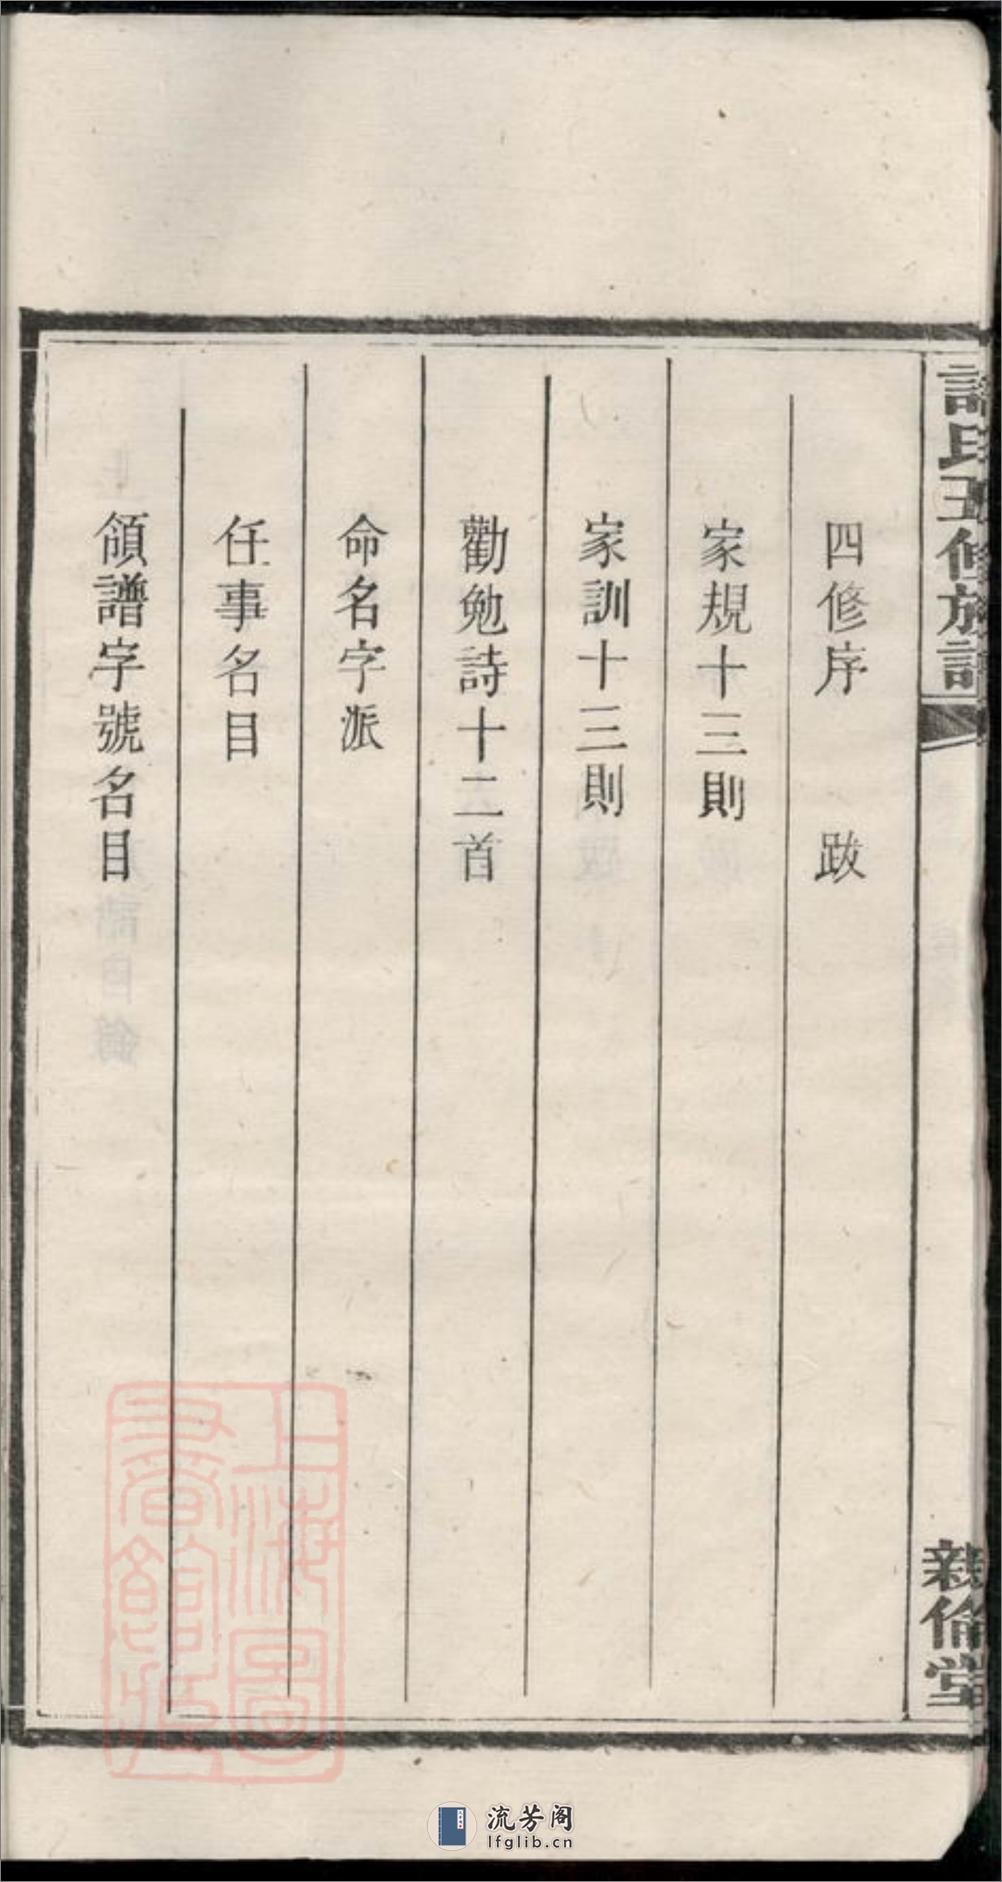 氏五修族譜
親倫堂
四修序　跋
家規十三則
家訓十三則
勸勉詩十二首
命名字派
任事名目
領譜字號名目
上海圖書館藏
流芳阁
lfglib.cn